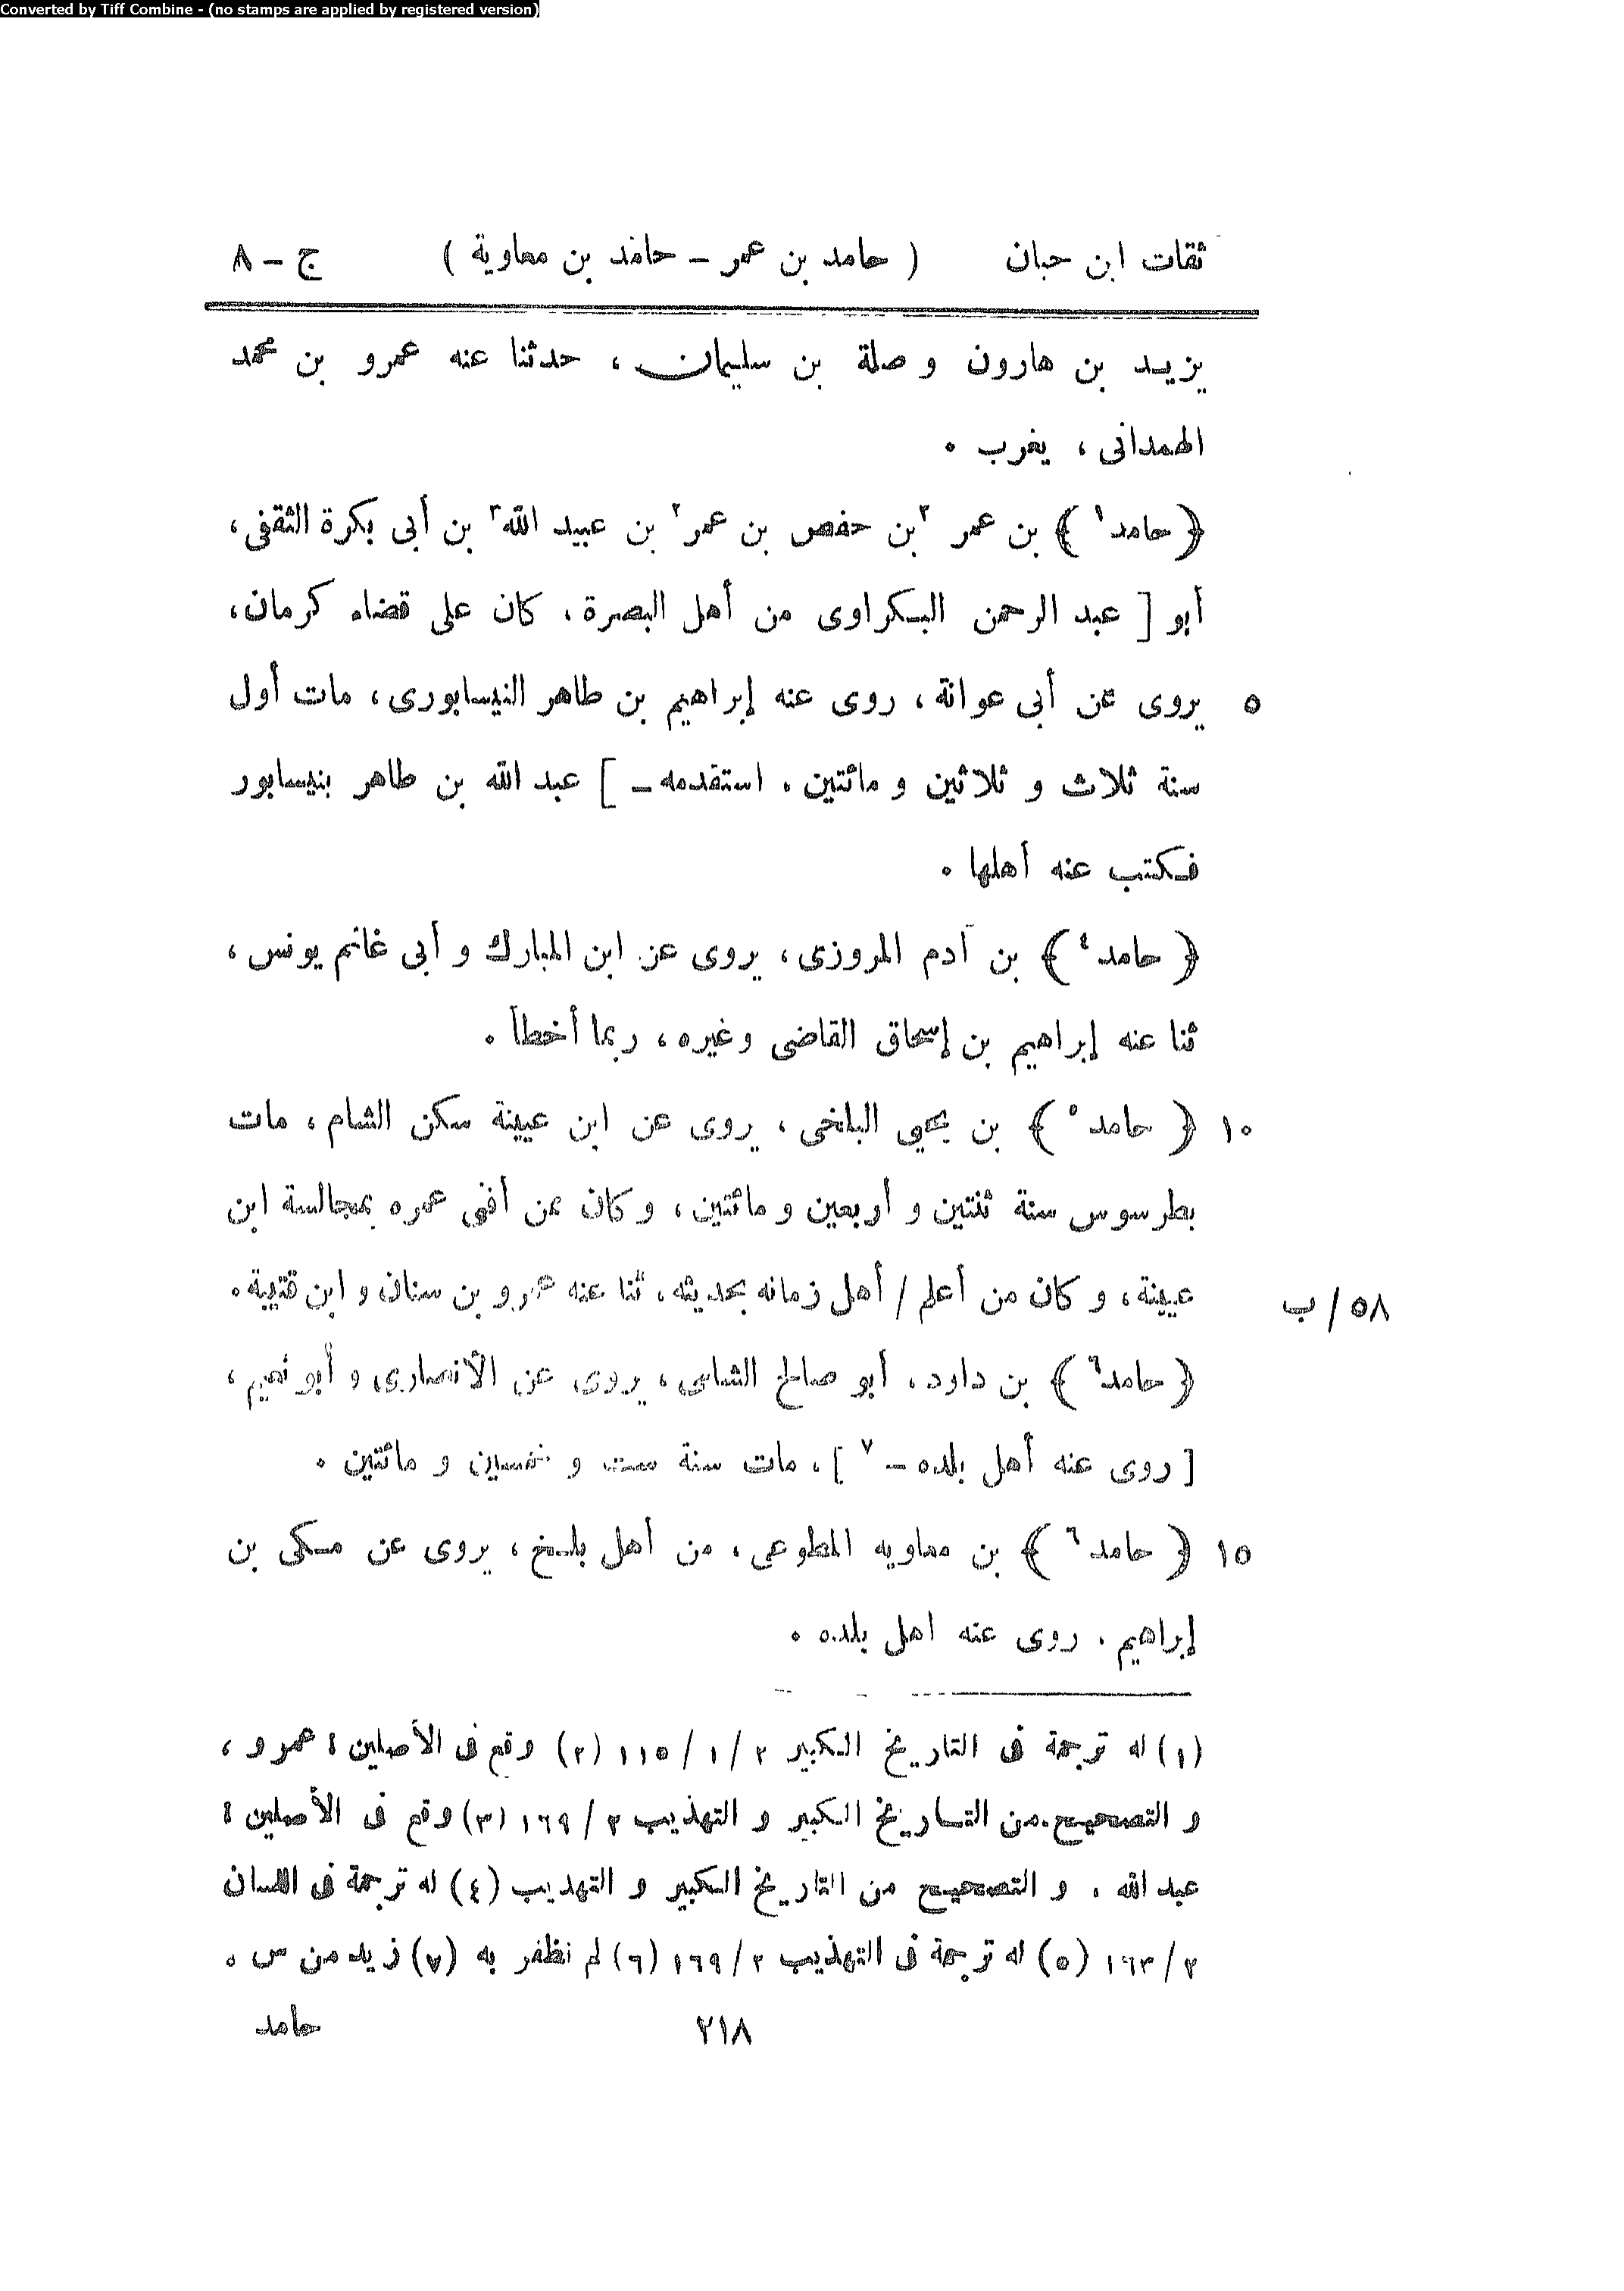 Converted by Tiff Combine - (no stamps are applied by registered version)
ثقات ابن حبان ( حامد بن عمر – حامد بن معاوية ) ج – ٨
يزيد بن هارون و صلة بن سليمان ، حدثنا عنه عمرو بن محمد
الهمدانى ، يغرب .
﴿ حامد١ ﴾ بن عمر ٢بن حفص بن عمر٢ بن عبيد الله٣ بن أبى بكرة الثقفى ،
أبو [ عبد الرحمن البكراوى من أهل البصرة ، كان على قضاء كرمان ،
٥ يروى عن أبى عوانة ، روى عنه إبراهيم بن طاهر النيسابورى ، مات أول
سنة ثلاث و ثلاثين و مائتين . استقدمه – ] عبد الله بن طاهر بنيسابور
فكتب عنه أهلها .
﴿ حامد٤ ﴾ بن آدم المروزى ، يروى عن ابن المبارك و أبى غانم يونس ،
ثنا عنه إبراهيم بن إسحاق القاضى وغيره ، ربما أخطأ .
١٠ ﴿ حامد٥ ﴾ بن يحيى البلخى ، يروى عن ابن عيينة سكن الشام ، مات
بطرسوس سنة ثنتين و أربعين و مائتين ، و كان ممن أفنى عمره بمجالسة ابن
عيينة ، و كان من أعلم / أهل زمانه بحديثه ، ثنا عنه عمرو بن سنان و ابن قتيبة . ٥٨ / ب
﴿ حامد٦ ﴾ بن داود ، أبو صالح الشاسى ، يروى عن الأنصارى و أبو نعيم ،
[ روى عنه أهل بلده – ٧ ] ، مات سنة ست و خمسين و مائتين .
١٥ ﴿ حامد٦ ﴾ بن معاويه المطوعى ، من أهل بلخ ، يروى عن مكى بن
إبراهيم . روى عنه اهل بلده .
(١) له ترجمة فى التاريخ الكبير ٢ / ١ / ١١٥ (٢) وقع فى الأصلين : عمرو ،
و التصحيح من التاريخ الكبير و التهذيب ٢ / ١٦٩ (٣) وقع فى الأصلين :
عبد الله . و التصحيح من التاريخ الكبير و التهذيب (٤) له ترجمة فى اللسان
٢ / ١٦٣ (٥) له ترجمة فى التهذيب ٢ / ١٦٩ (٦) لم نظفر به (٧) زيد من س .
٢١٨ حامد